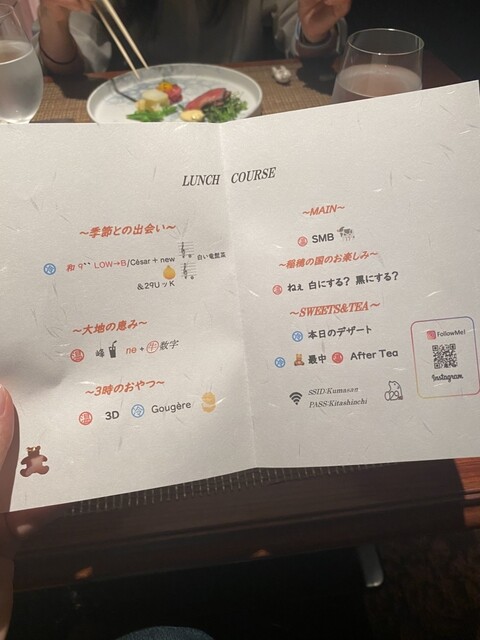 LUNCH COURSE
～季節との出会い～
冷 和 9°° LOW→B/César + new 白い竜髭菜
&29UッK
～大地の恵み～
温 峰 ne + 牛 数字
～3時のおやつ～
温 3D 冷 Gougère
～MAIN～
温 SMB
～稲穂の国のお楽しみ～
温 ねぇ 白にする? 黒にする?
～SWEETS&TEA～
冷 本日のデザート
冷 最中 温 After Tea
SSID:Kumasan
PASS:Kitashinchi
FollowMe!
Instagram